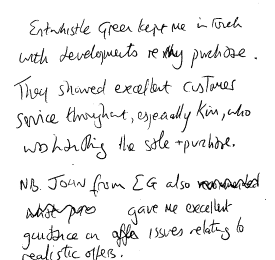 Entwhistle Green kept me in touch
with developments re my purchase.
They showed excellent customer
service throughout, especially Kim, who
was handling the sale + purchase.
NB. John from EG also
gave me excellent
guidance on offer issues relating to
realistic offers.